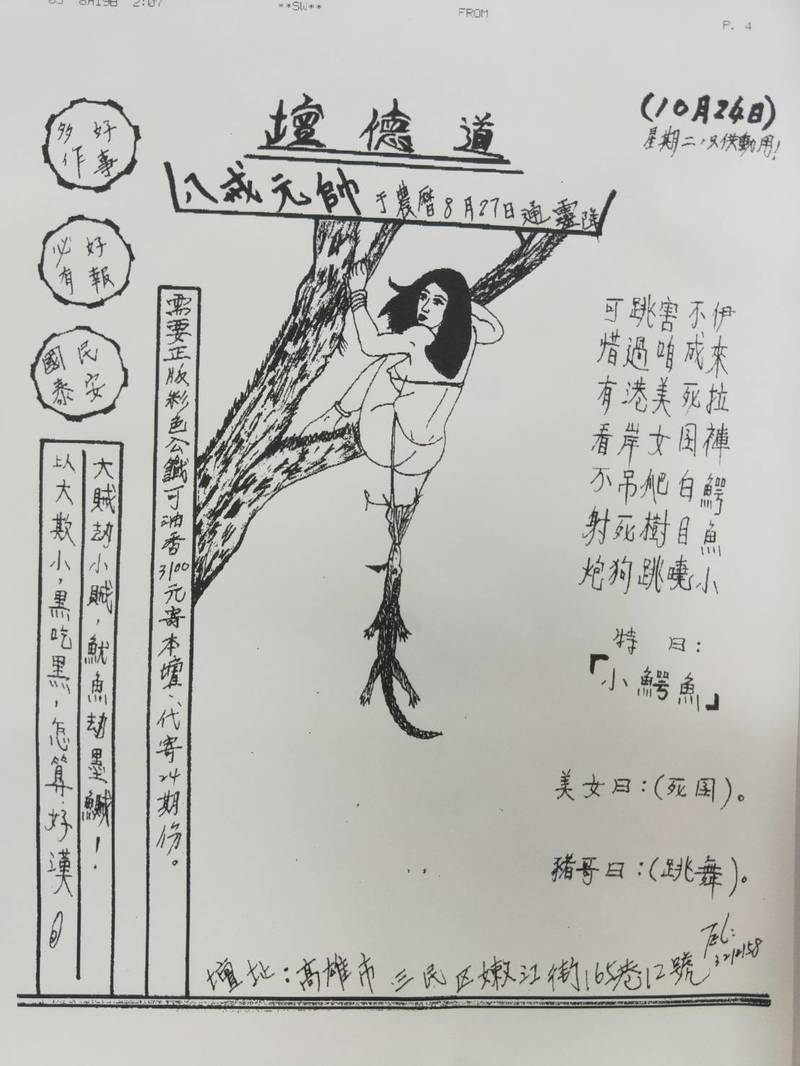 2:07
**SW**
FROM
P. 4
(10月24日)
星期二,只供動用!
道德壇
八戒元帥于農曆8月27日通靈降
好事多作
好報必有
民安國泰
伊來拉褲鱷魚小
不成死囯白目嘵
害咱美女爬樹跳
跳過港岸吊死狗
可惜有看不射炮
特曰:
「小鱷魚」
美女曰:(死囯)。
豬哥曰:(跳舞)。
需要正版彩色公鑯可油香3100元寄本壇、代寄24期份。
大賊劫小賊,魷魚劫墨鰂!
以大欺小,黑吃黑,怎算好漢
壇址:高雄市三民区嫩江街165巷12號